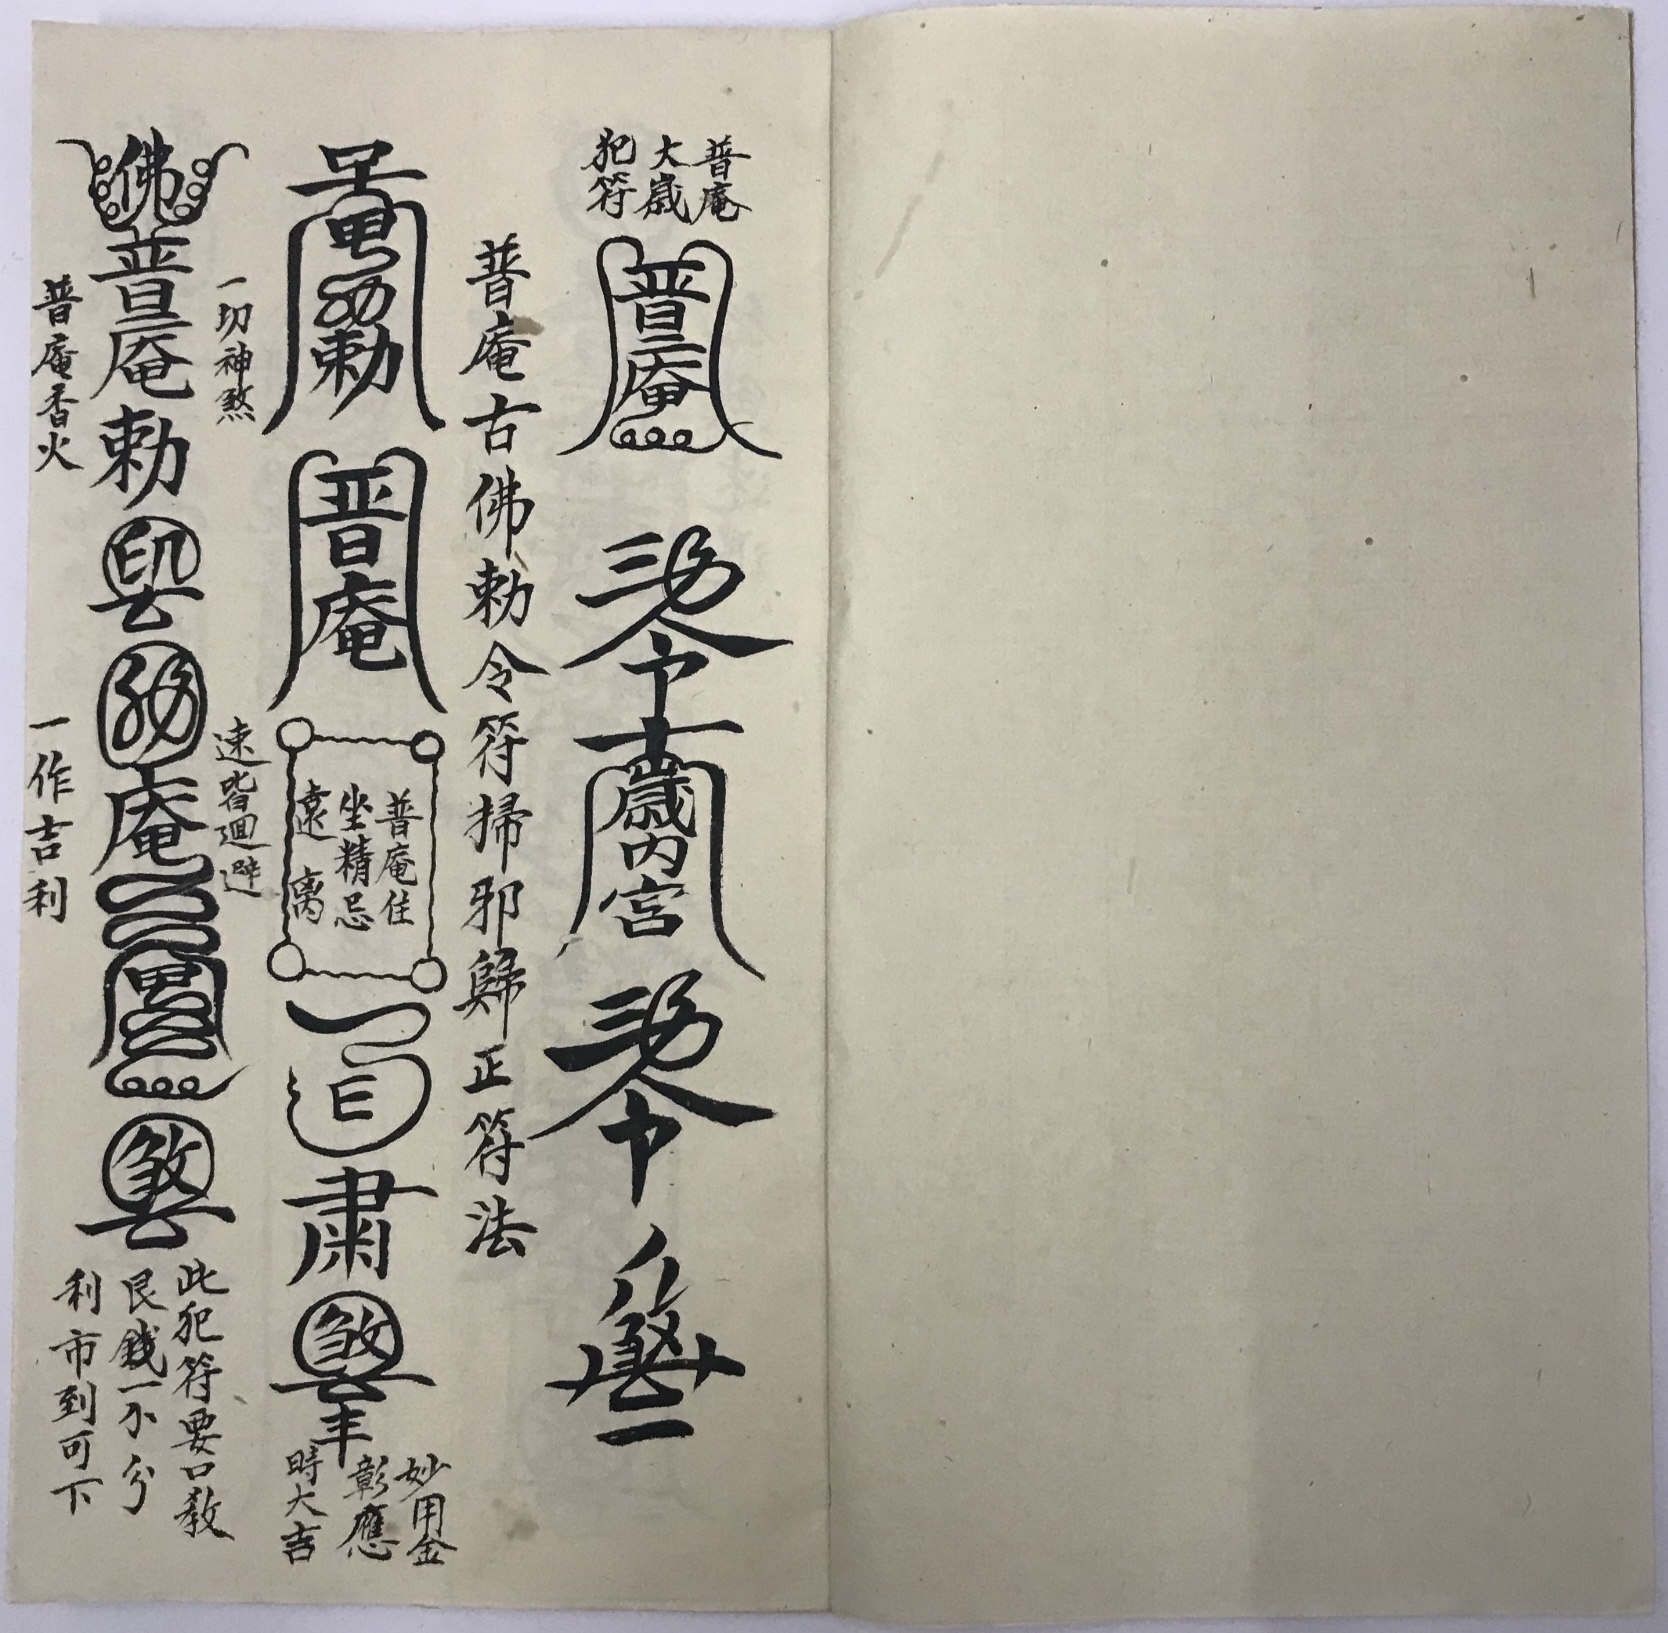 普庵
大歳
犯符
普庵
歳内宮
普庵古佛勅令符掃邪歸正符法
勅
普庵
普庵住
坐精忌
遠离
肅
煞
妙用金
彰應
時大吉
一切神煞
速皆迴避
佛普庵勅
印
庵
煞
普庵香火
一作吉利
此犯符要口教
艮錢一不分
利市到可下